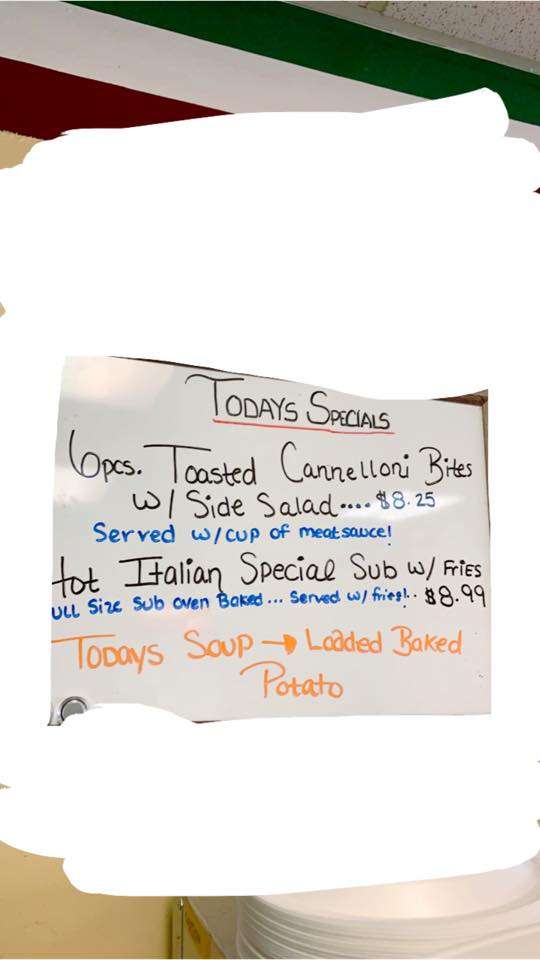 TODAYS SPECIALS
6pcs. Toasted Cannelloni Bites
w/ Side Salad.... $8.25
Served w/cup of meatsauce!
Hot Italian Special Sub w/ FRIES
ULL Size Sub oven Baked... Served w/ fries!.. $8.99
TODAYS SOUP → Loaded Baked
Potato